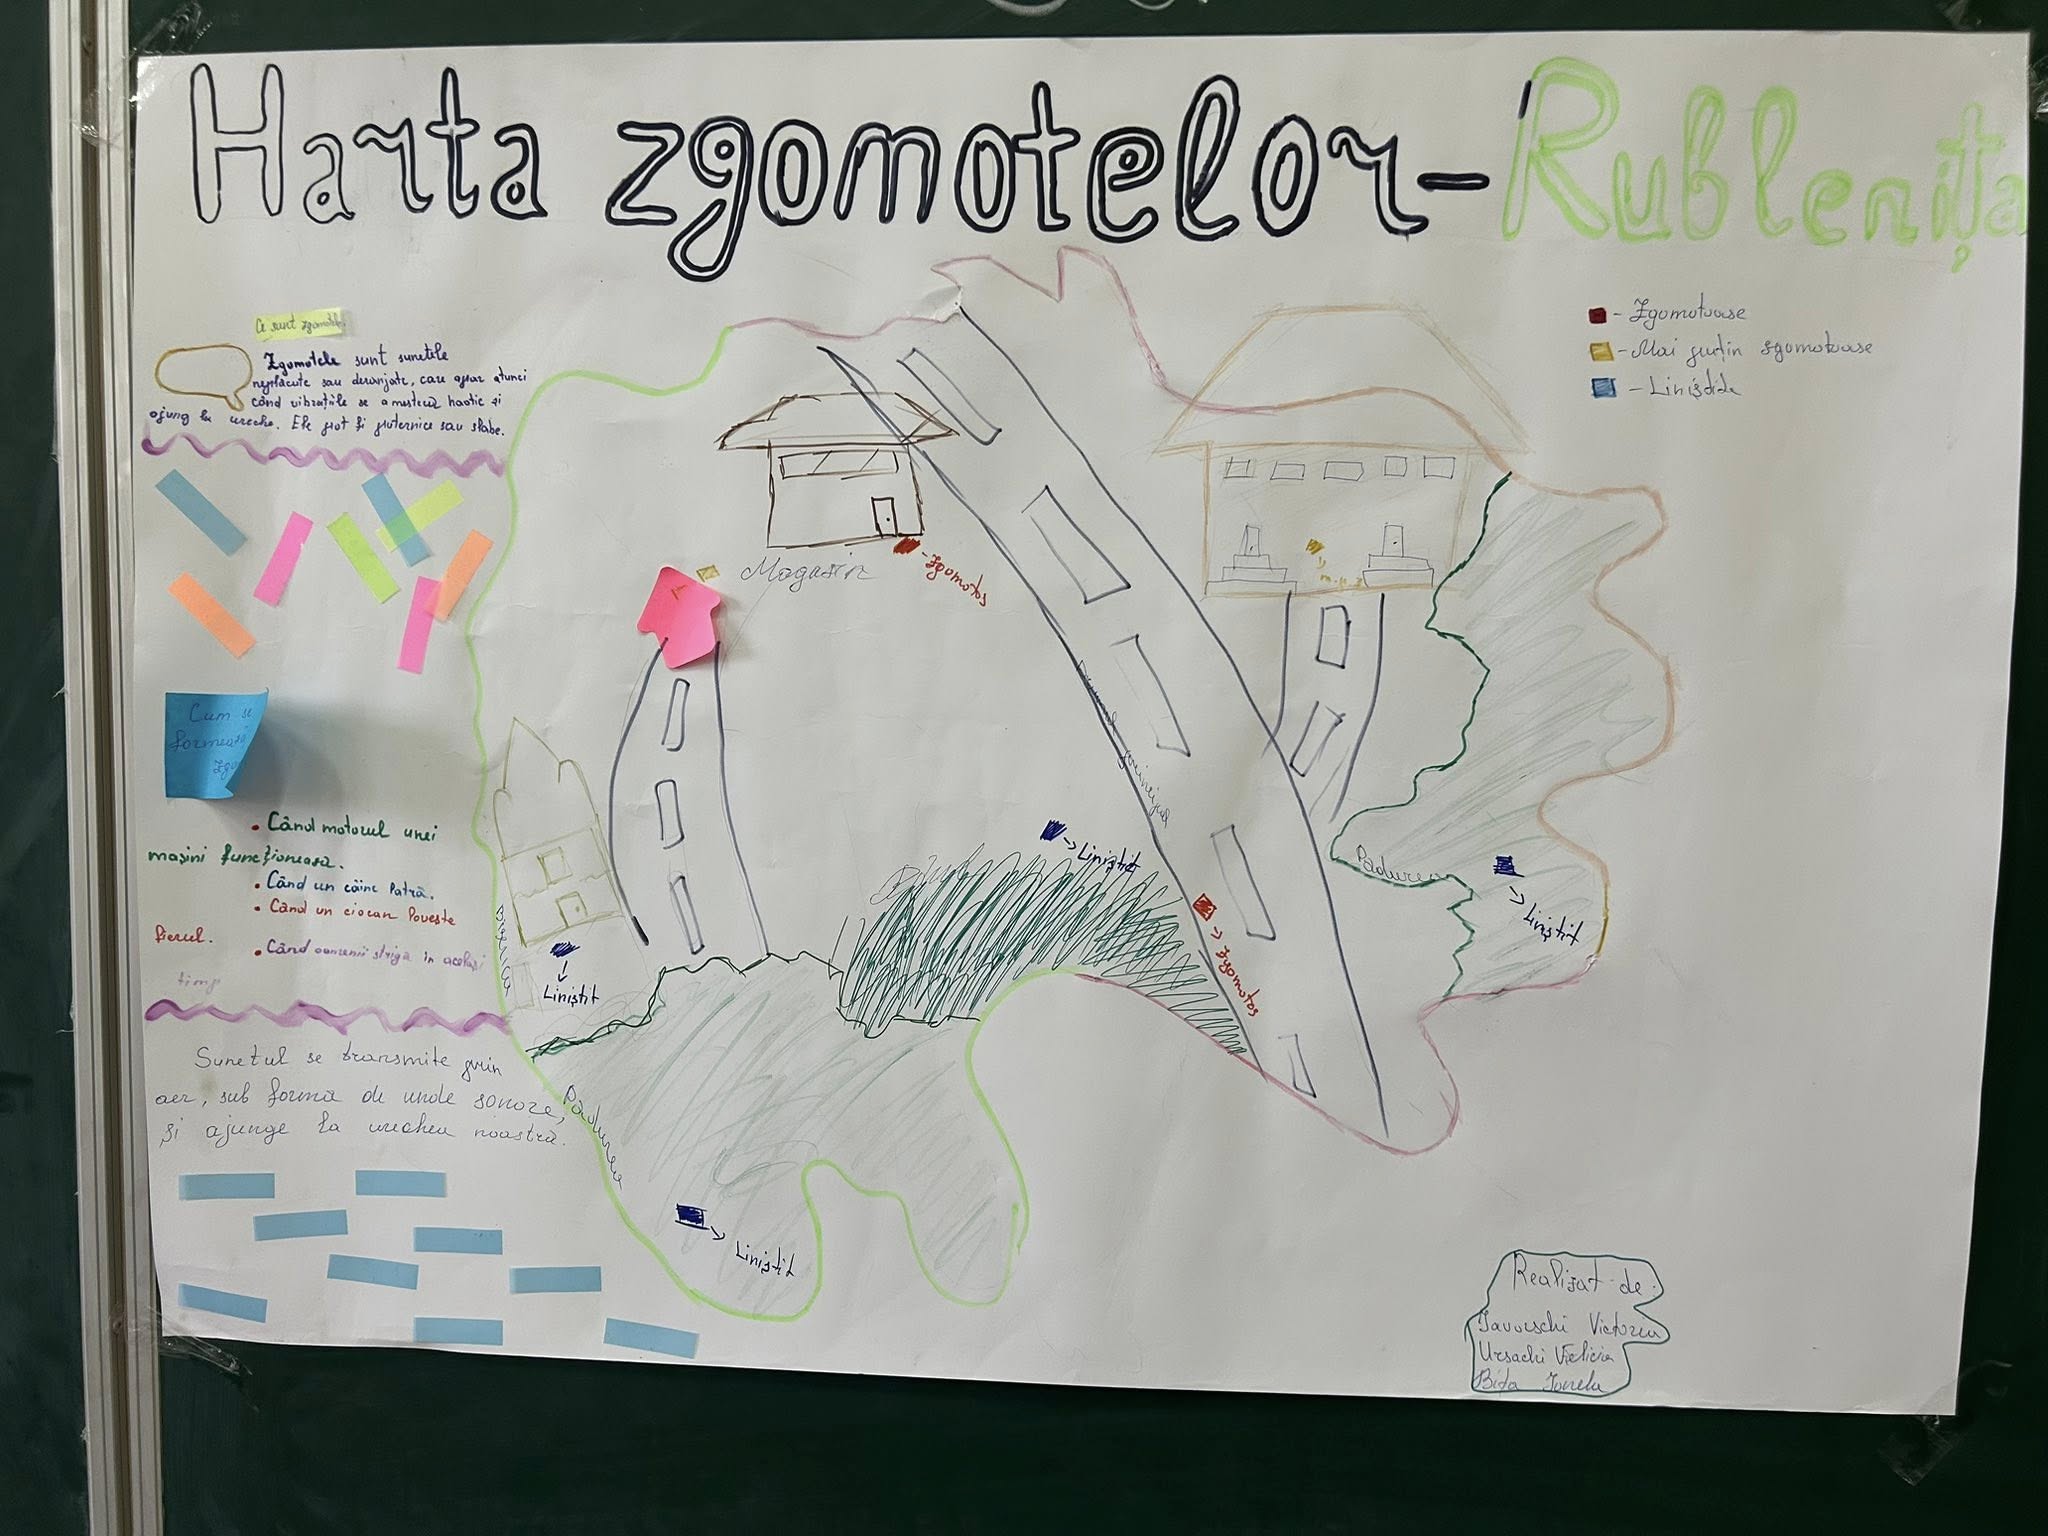 Harta zgomotelor - Rublenița
Ce sunt zgomotele
Zgomotele sunt sunetele
neplăcute sau deranjate, care apar atunci
când vibrațiile se amestecă haotic și
ajung la ureche. Ele pot fi puternice sau slabe.
Cum se
formează
zgo
• Când motorul unei
mașini funcționează.
• Când un câine latră.
• Când un ciocan lovește
fierul.
• Când oamenii strigă în același
timp
Sunetul se transmite prin
aer, sub formă de unde sonore,
și ajunge la urechea noastră.
- Zgomotoase
- Mai puțin zgomotoase
- Liniștite
Magazin
- Zgomotos
m.p.z
principal
Biserica
Liniștit
Liniștit
Zgomotos
Pădurea
Liniștit
Pădurea
Liniștit
Realizat de:
Iavorschi Victoria
Ursachi
Bița Ionela